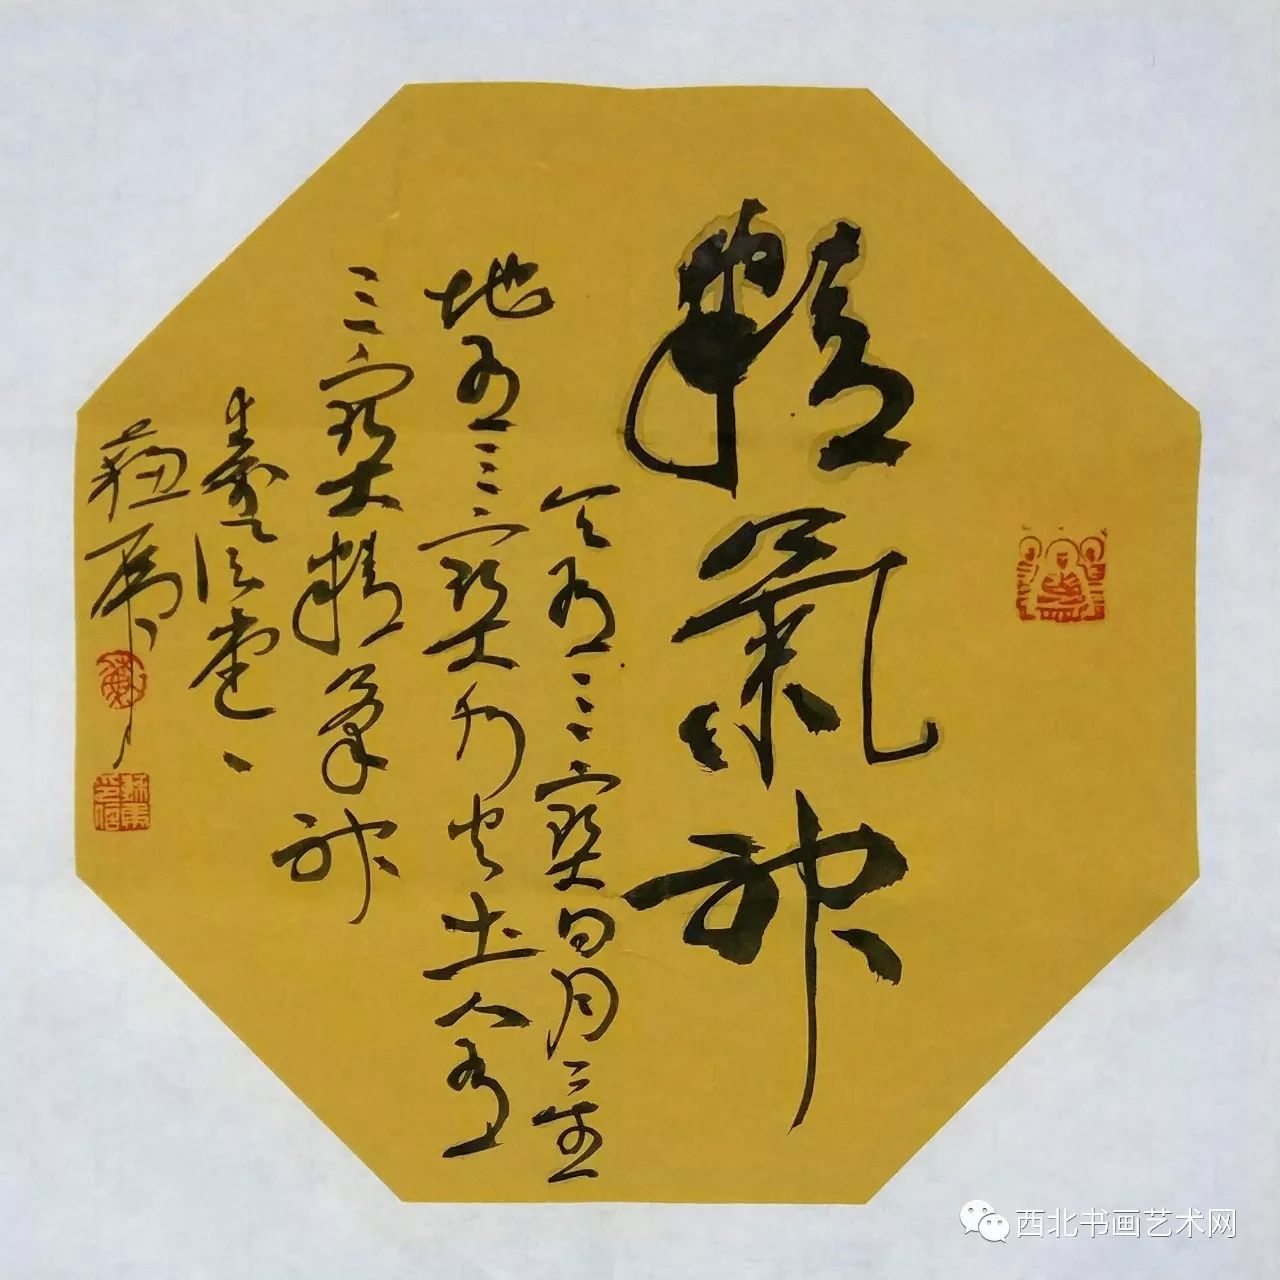 精氣神
天有三寶日月星
地有三寶水火土人有
三寶精氣神
西北书画艺术网